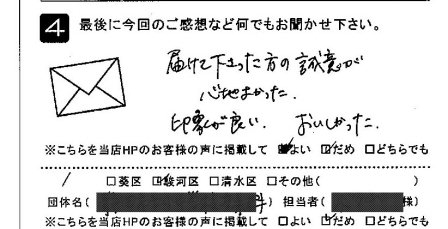 4 最後に今回のご感想など何でもお聞かせ下さい。
届けて下さった方の誠意が
心地よかった.
印象が良い. おいしかった.
※こちらを当店HPのお客様の声に掲載して ☑よい ☑だめ □どちらでも
□葵区 ☑駿河区 □清水区 □その他( )
団体名( ) 担当者( 様)
※こちらを当店HPのお客様の声に掲載して □よい ☑だめ □どちらでも